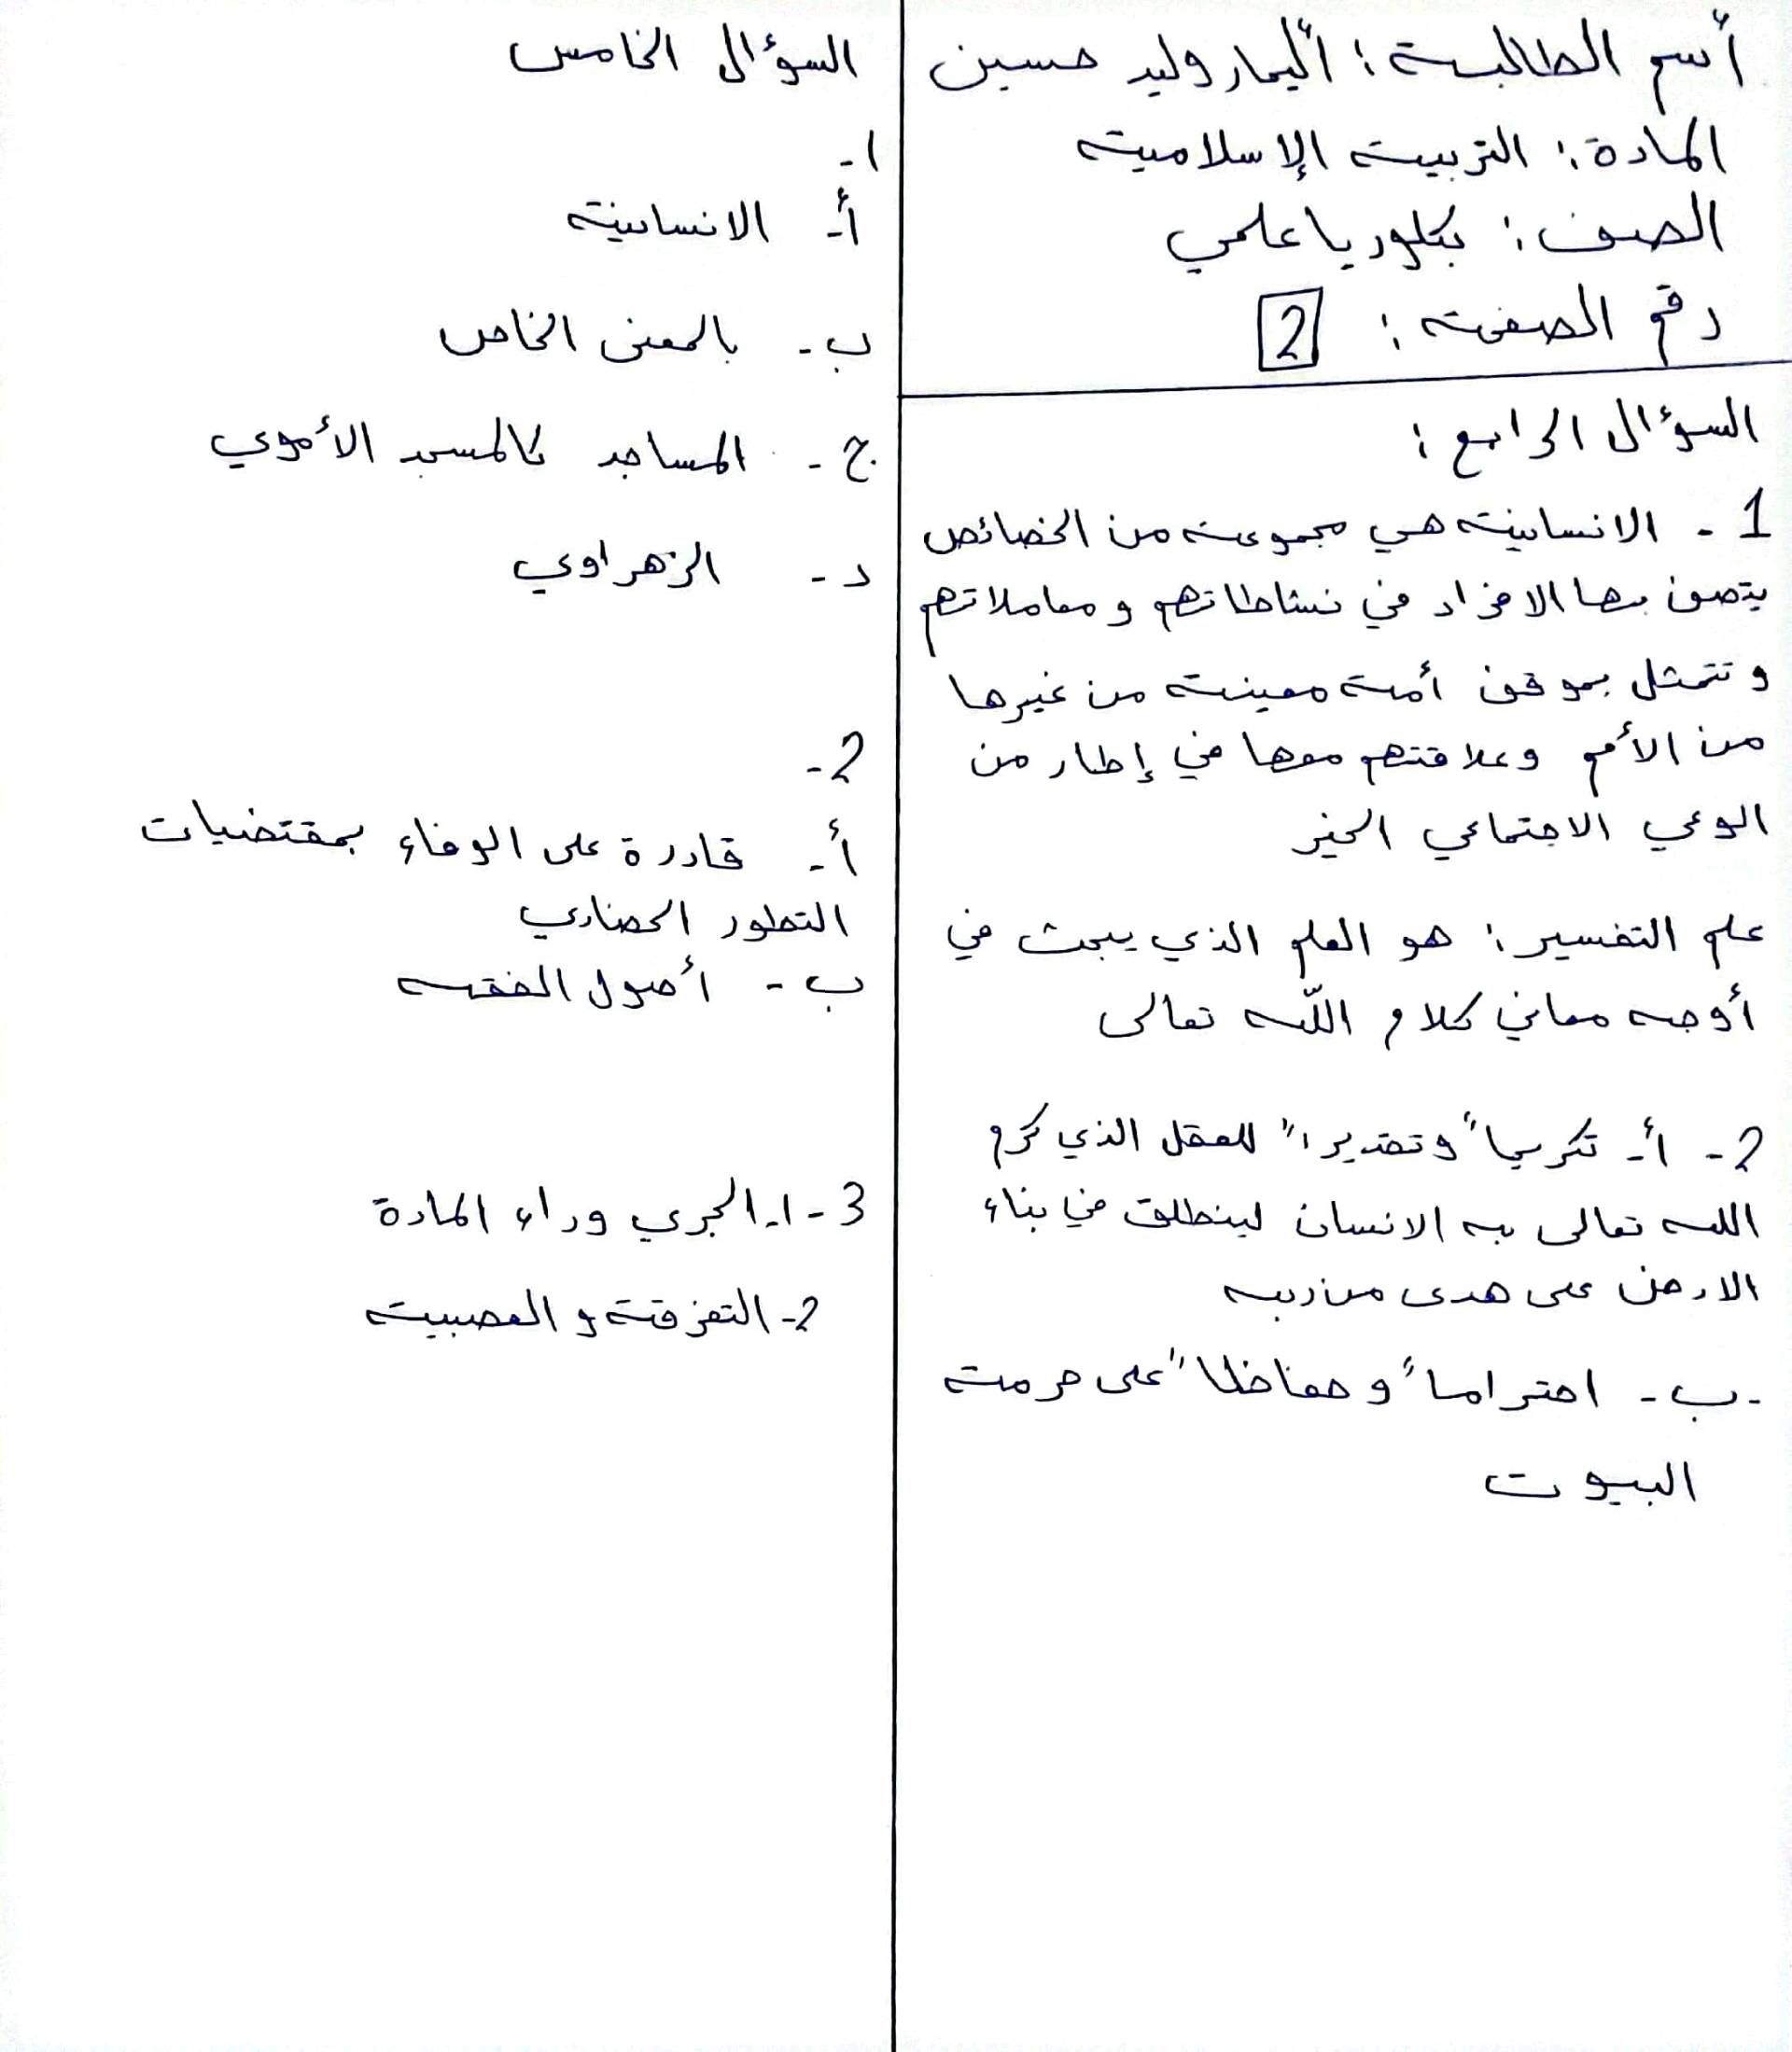 أسم الطالبة: أليمار وليد حسين
المادة: التربية الإسلامية
الصف: بكلوريا علمي
رقم الصفحة: 2
السؤال الرابع:
1 - الانسانية هي مجموعة من الخصائص
يتصف بها الافراد في نشاطاتهم و معاملاتهم
و تتمثل بموقف أمة معينة من غيرها
من الأمم وعلاقتهم معها في إطار من
الوعي الاجتماعي الخير
علم التفسير: هو العلم الذي يبحث في
أوجه معاني كلام اللّه تعالى
2 - أ - تكريماً و تقديراً للعقل الذي كرم
الله تعالى به الانسان لينطلق في بناء
الارض على هدى من ربه
- ب - احتراماً و حفاظاً على حرمة
البيوت
السؤال الخامس
1-
أ - الانسانية
ب - بالمعنى الخاص
ج - المساجد كالمسجد الأموي
د - الزهراوي
2-
أ - قادرة على الوفاء بمقتضيات
التطور الحضاري
ب - أصول الفقه
3 - 1- الجري وراء المادة
2- التفرقة و العصبية